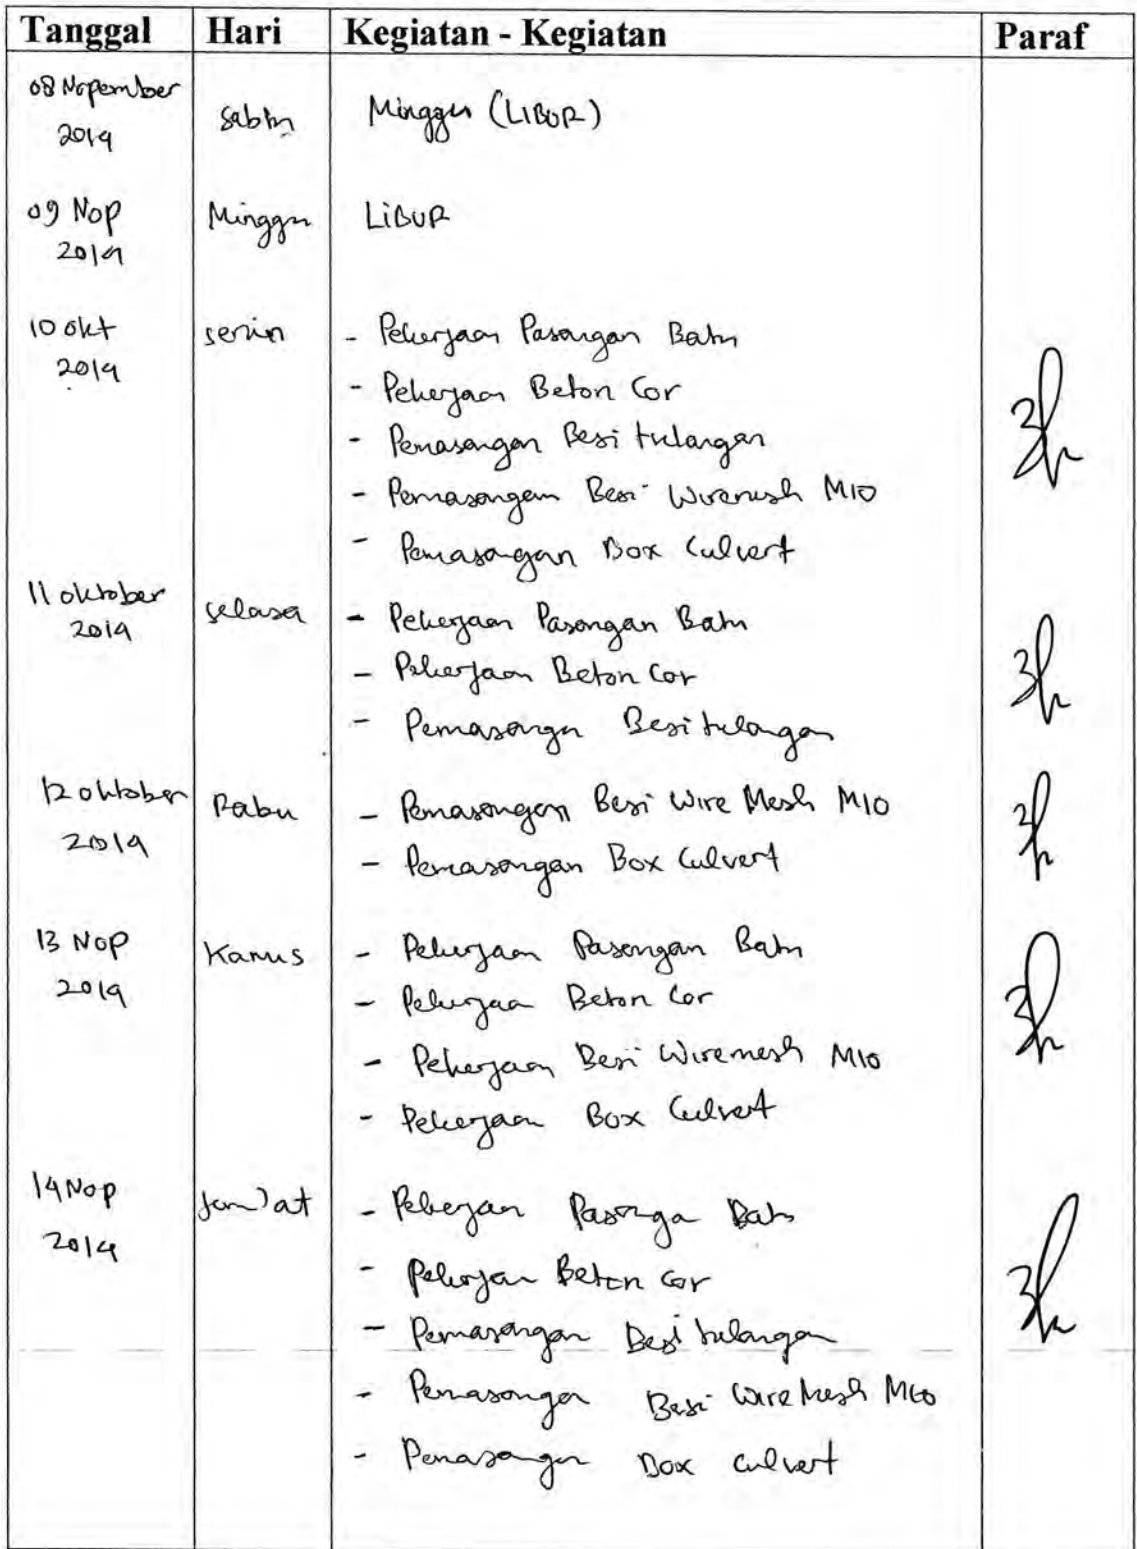 Tanggal Hari Kegiatan - Kegiatan Paraf
08 Nopember 2014 Sabtu Minggu (LIBUR)
09 Nop 2014 Minggu LIBUR
10 okt 2014 senin - Pekerjaan Pasangan Batu
- Pekerjaan Beton Cor
- Pemasangan Besi tulangan
- Pemasangan Besi Wiremesh M10
- Pemasangan Box Culvert
11 oktober 2014 selasa - Pekerjaan Pasangan Batu
- Pekerjaan Beton Cor
- Pemasanga Besi tulangan
12 oktober 2014 Rabu - Pemasangan Besi Wire Mesh M10
- Pemasangan Box Culvert
13 Nop 2014 Kamis - Pekerjaan Pasangan Batu
- Pekerjaa Beton Cor
- Pekerjaan Besi Wiremesh M10
- Pekerjaan Box Culvert
14 Nop 2014 Jum'at - Pekerjan Pasanga Batu
- Pekerjan Beton Cor
- Pemasangan Besi tulangan
- Pemasangan Besi Wire Mesh M10
- Pemasangan Box culvert